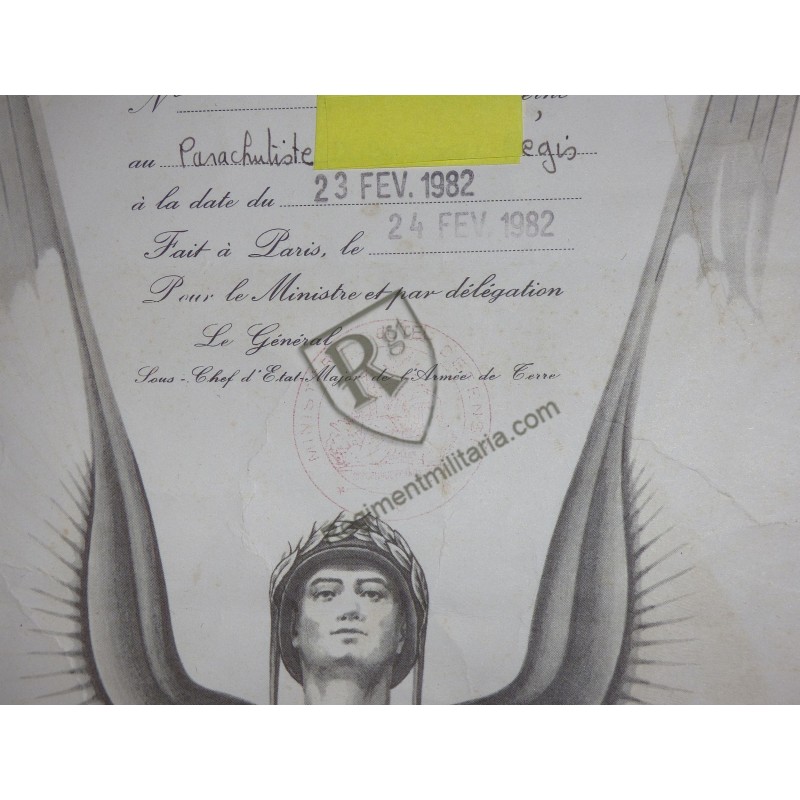 N°
au Parachutiste Régis
à la date du 23 FEV. 1982
Fait à Paris, le 24 FEV. 1982
Pour le Ministre et par délégation
Le Général
Sous-Chef d'Etat-Major de l'Armée de Terre
Rgt
regimentmilitaria.com